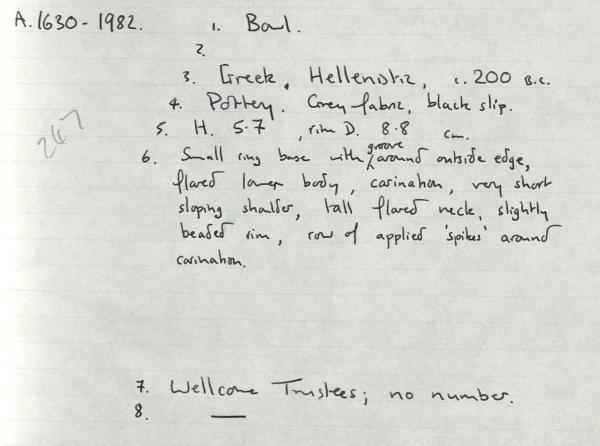 A.1630-1982. 1. Bowl.
2.
3. Greek, Hellenistic, c. 200 B.C.
4. Pottery. Grey fabric, black slip.
247
5. H. 5.7 , rim D. 8.8 cm.
6. Small ring base with groove around outside edge,
flared lower body, carination, very short
sloping shoulder, tall flared neck, slightly
beaded rim, row of applied 'spikes' around
carination.
7. Wellcome Trustees; no number.
8. —